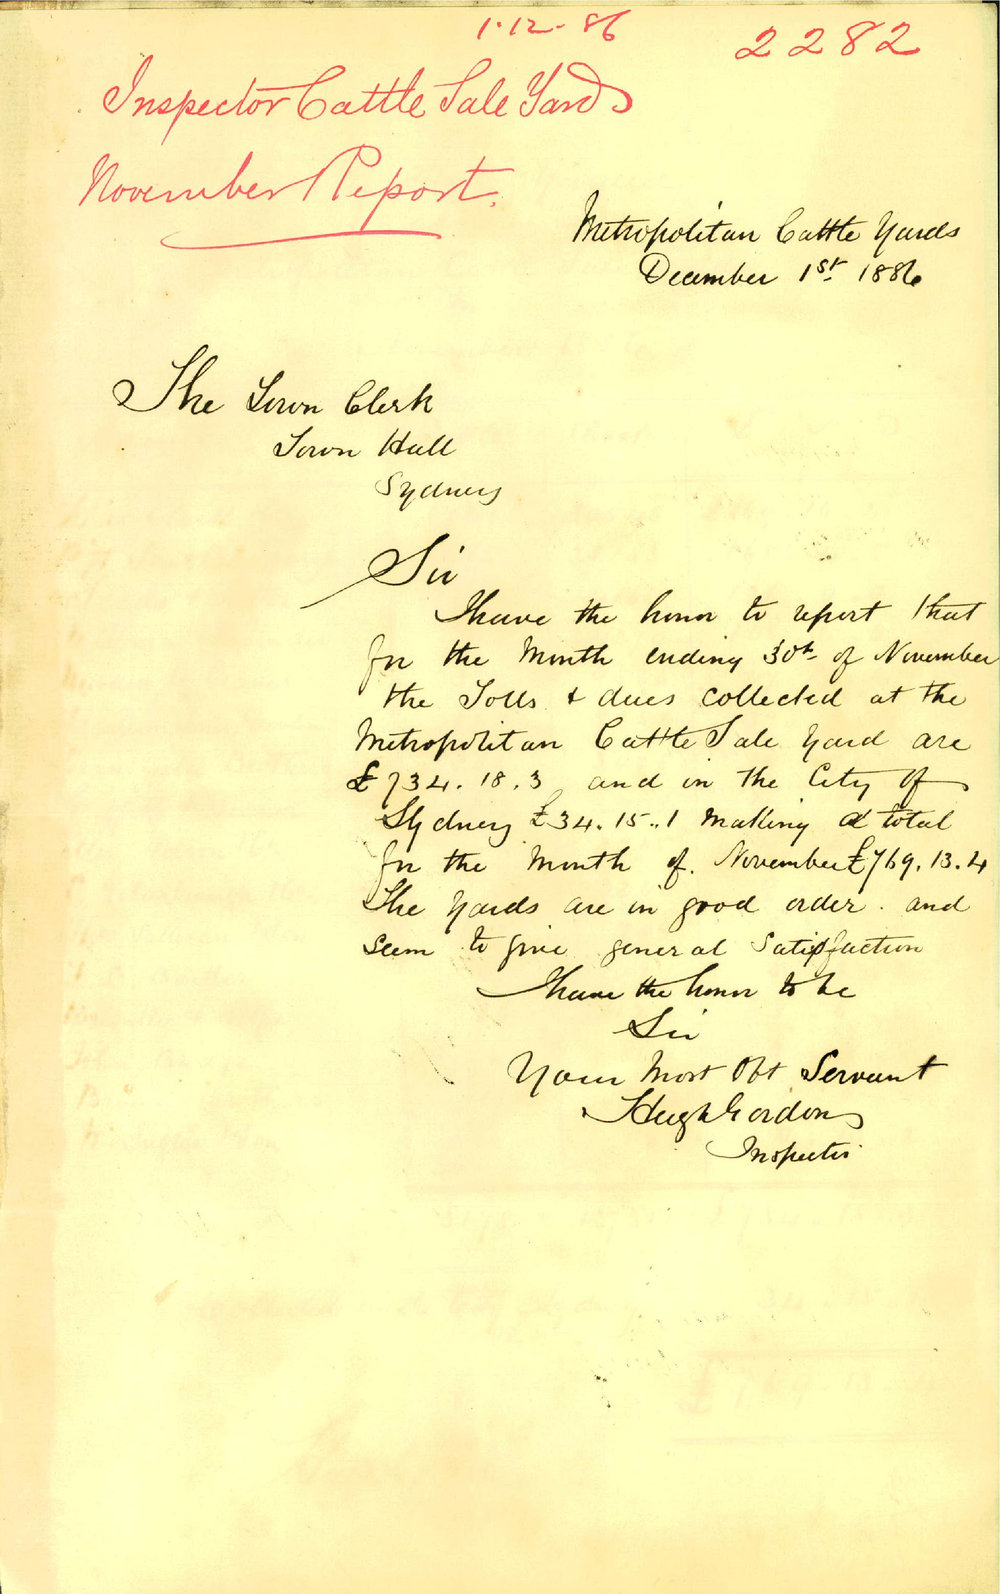 1.12.86
2282
Inspector Cattle Sale Yards
November Report.
Metropolitan Cattle Yards
December 1st 1886
The Town Clerk
Town Hall
Sydney
Sir
I have the honor to report that
for the Month ending 30th of November
the Tolls & dues collected at the
Metropolitan Cattle Sale Yard are
£734.18.3 and in the City of
Sydney £34.15..1 making a total
for the Month of. November £769.13.4
The Yards are in good order. and
seem to give general Satisfaction
I have the honor to be
Sir
Your Most Obt Servant
Hugh Gordon
Inspector